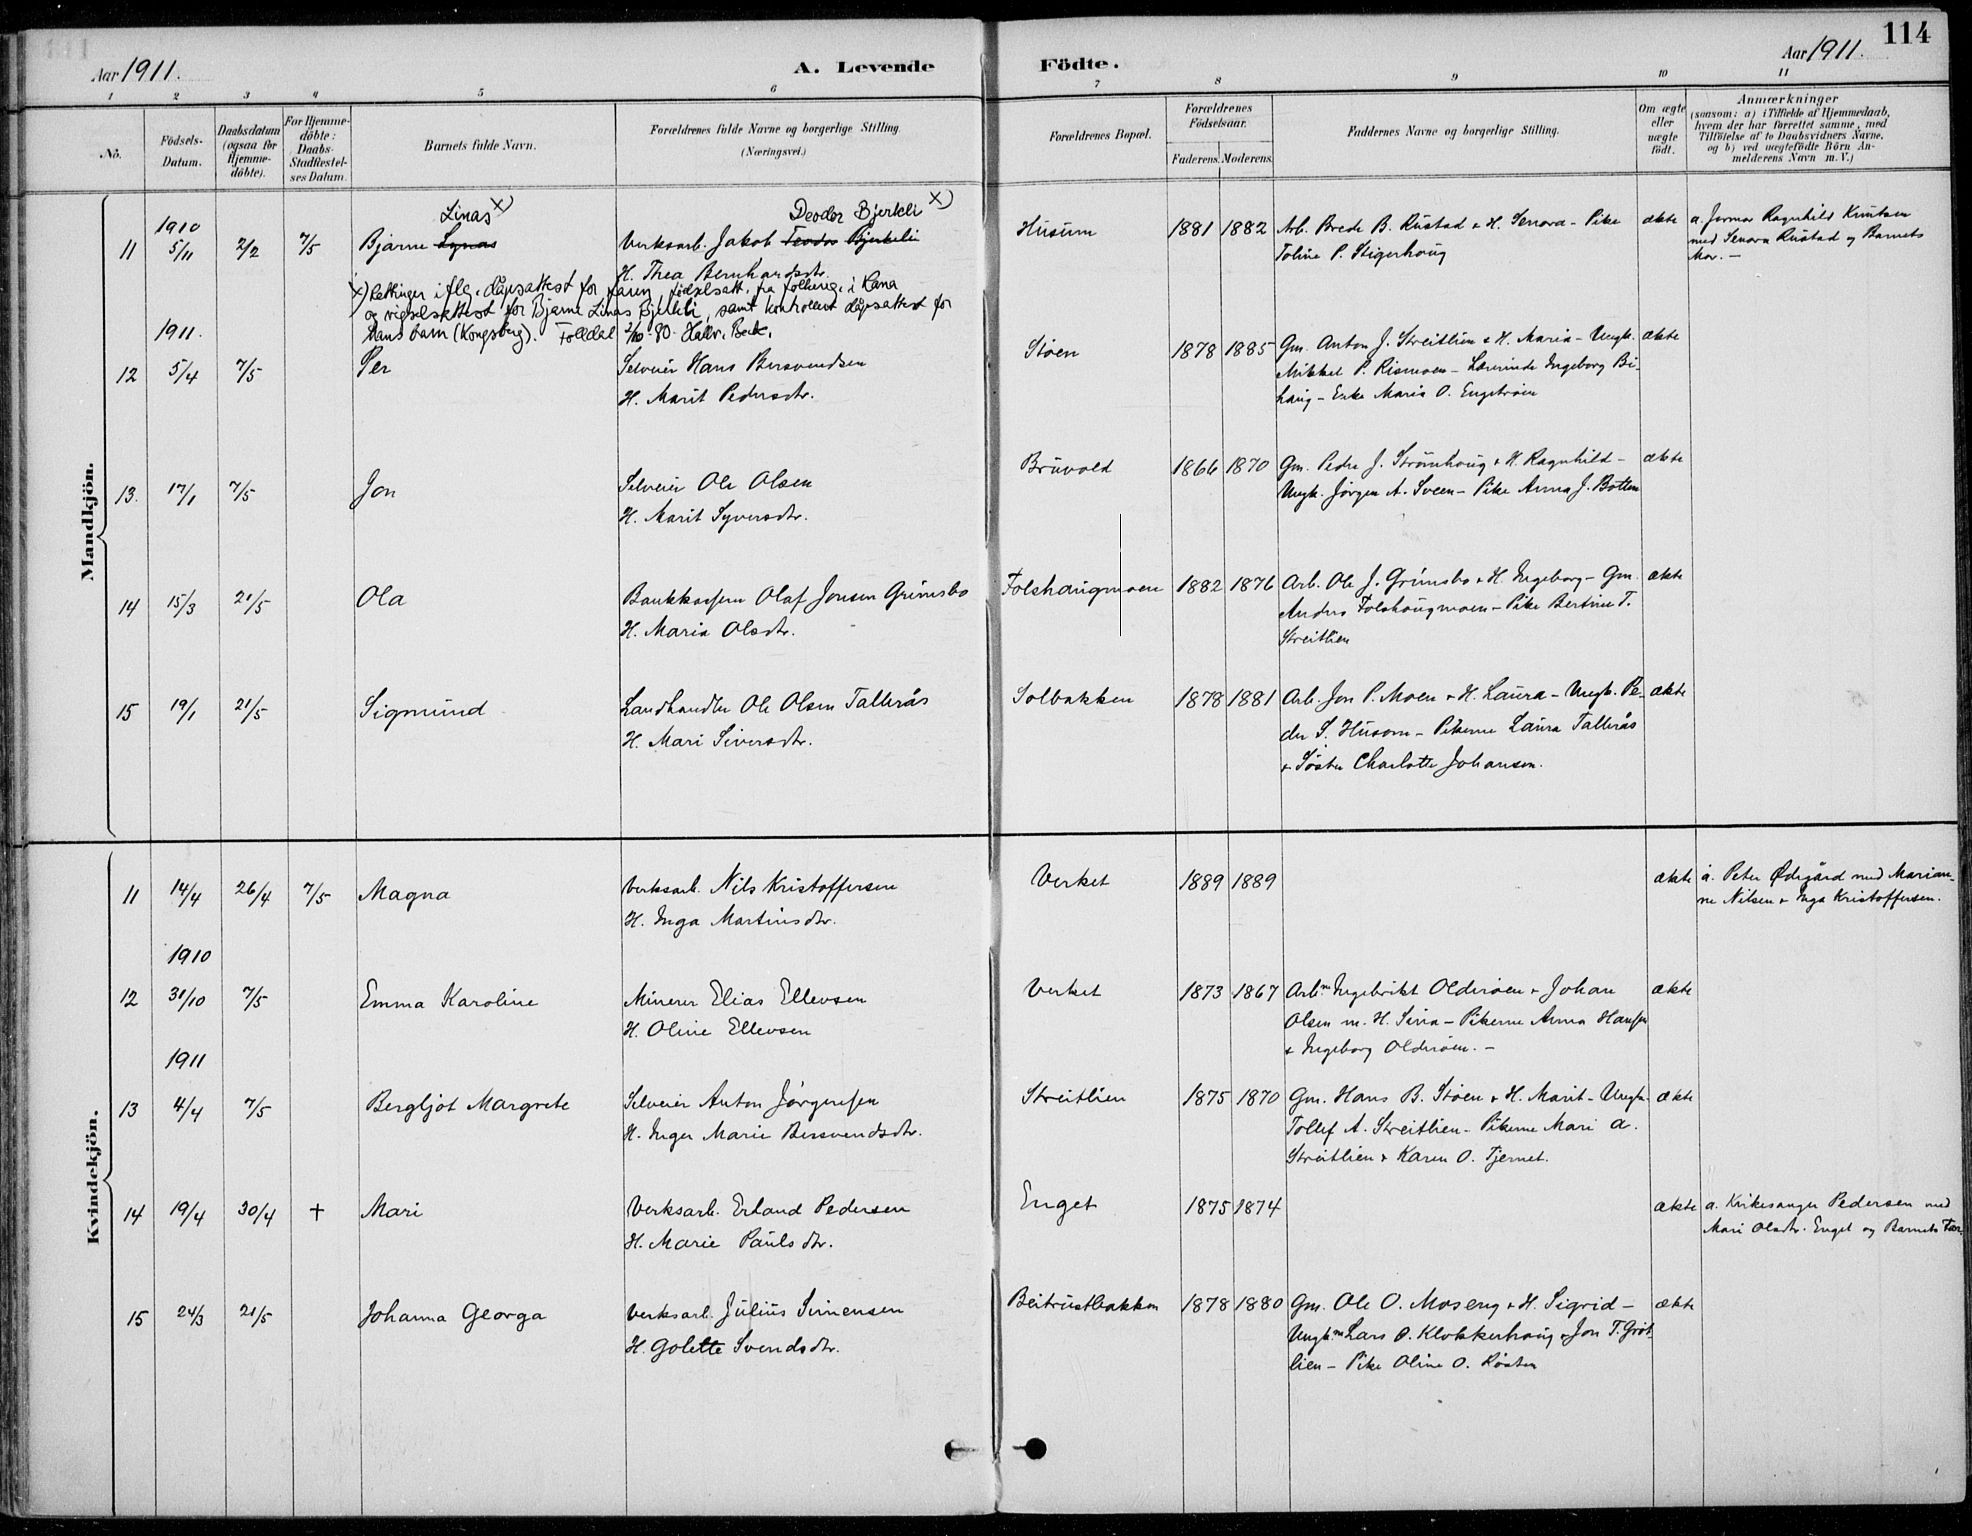 114
Aar 1911.
A. Levende Födte.
Aar 1911.
1 2 3 4 5 6 7 8 9 10 11
No.
Födsels-Datum.
Daabsdatum (ogsaa for Hjemme-döbte).
For Hjemme-döbte: Daabs-Stadfæstel-ses Datum.
Barnets fulde Navn.
Forældrenes fulde Navne og borgerlige Stilling.
(Næringsvei.)
Forældrenes Bopæl.
Forældrenes Födselsaar.
Faderens. Moderens.
Faddernes Navne og borgerlige Stilling.
Om ægte eller uægte födt.
Anmærkninger
(saasom: a) i Tilfælde af Hjemmedaab, hvem der har forrettet samme, med Tilföielse af to Daabsvidners Navne, og b) ved uægtefödte Börn An-melderens Navn m. V.)
Mandkjön.
1910
Linas x)
Deodor Bjerkeli x)
11 5/11 2/2 7/5 Bjarne Lynas Verksarb. Jakob Teodor Bjerkeli Husum 1881 1882 Arb. Brede B. Rustad & H. Senora - Pike ækte a. Jormor Ragnhild Knutsen
H. Thea Bernhardsdtr. Toline P. Stigerhoug med Senora Rustad og Barnets
Mor. -
x) Rettinger iflg. dåpsattest for faren, fødselsatt. fra folkereg. i Rana
og vigselsattest for Bjarne Linas Bjerkeli, samt kontrollert dåpsattest for
hans barn (Kongsberg). Folldal 2/10-80. Hallv. Beck.
1911.
12 5/4 7/5 Per Selveier Hans Bersvendsen Støen 1878 1885 Gm. Anton J. Streitlien & H. Maria - Ungk. ækte
H. Marit Pedersdtr. Mikkel P. Rismoen - Lærerinde Ingeborg Bi-
haug - Enke Maria O. Engetrøen
13. 17/1 7/5 Jon Selveier Ole Olsen Bruvold 1866 1870 Gm. Peder J. Strømhoug & H. Ragnhild - ækte
H. Marit Syversdtr. Ungk. Jørgen A. Sveen - Pike Anna J. Botten
14 15/3 21/5 Ola Bankkasserer Olaf Jonsen Grimsbo Folshaugmoen 1882 1876 Arb. Ole J. Grimsbo & H. Ingeborg - Gm. ækte
H. Maria Olsdtr. Anders Folshougmoen - Pike Bertine T.
Streitlien
15 19/1 21/5 Sigmund Landhandler Ole Olsen Tallerås Solbakken 1878 1881 Arb. Jon P. Moen & H. Laura - Ungk. Pe- ækte
H. Mari Siversdtr. der S. Husom - Pikerne Laura Tallerås
& Søster Charlotte Johansen.
Kvindekjön.
11 14/4 26/4 7/5 Magna Verksarb. Nils Kristoffersen Verket 1889 1889 ækte a. Peter Ødegård med Marian-
H. Inga Martinsdtr. ne Nilsen & Inga Kristoffersen.
1910
12 31/10 7/5 Emma Karoline Minerer Elias Ellevsen Verket 1873 1867 Arb. Ingebrikt Oldrøen & Johan ækte
H. Oline Ellevsen Olsen m. H. Sina - Pikerne Anna Hansen
& Ingeborg Oldrøen. -
1911
13 4/4 7/5 Bergljot Margrete Selveier Anton Jørgensen Streitlien 1875 1870 Gm. Hans B. Støen & H. Marit - Ungk. ækte
H. Inger Marie Bersvendsdtr. Tollef A. Streitlien - Pikerne Mari A.
Streitlien & Karen O. Tjernet.
14 19/4 30/4 + Mari Verksarb. Erland Pedersen Enget 1875 1874 ækte a. Kirkesanger Pedersen med
H. Marie Paulsdtr. Mari Olsdtr. Enget og Barnets Far.
15 24/3 21/5 Johanna Georga Verksarb. Julius Simensen Beitrustbakken 1878 1880 Gm. Ole O. Moseng & H. Sigrid - ækte
H. Golette Svendsdtr. Ungk. Lars O. Klokkerhaug & Jon T. Grøt-
lien - Pike Oline O. Røsten